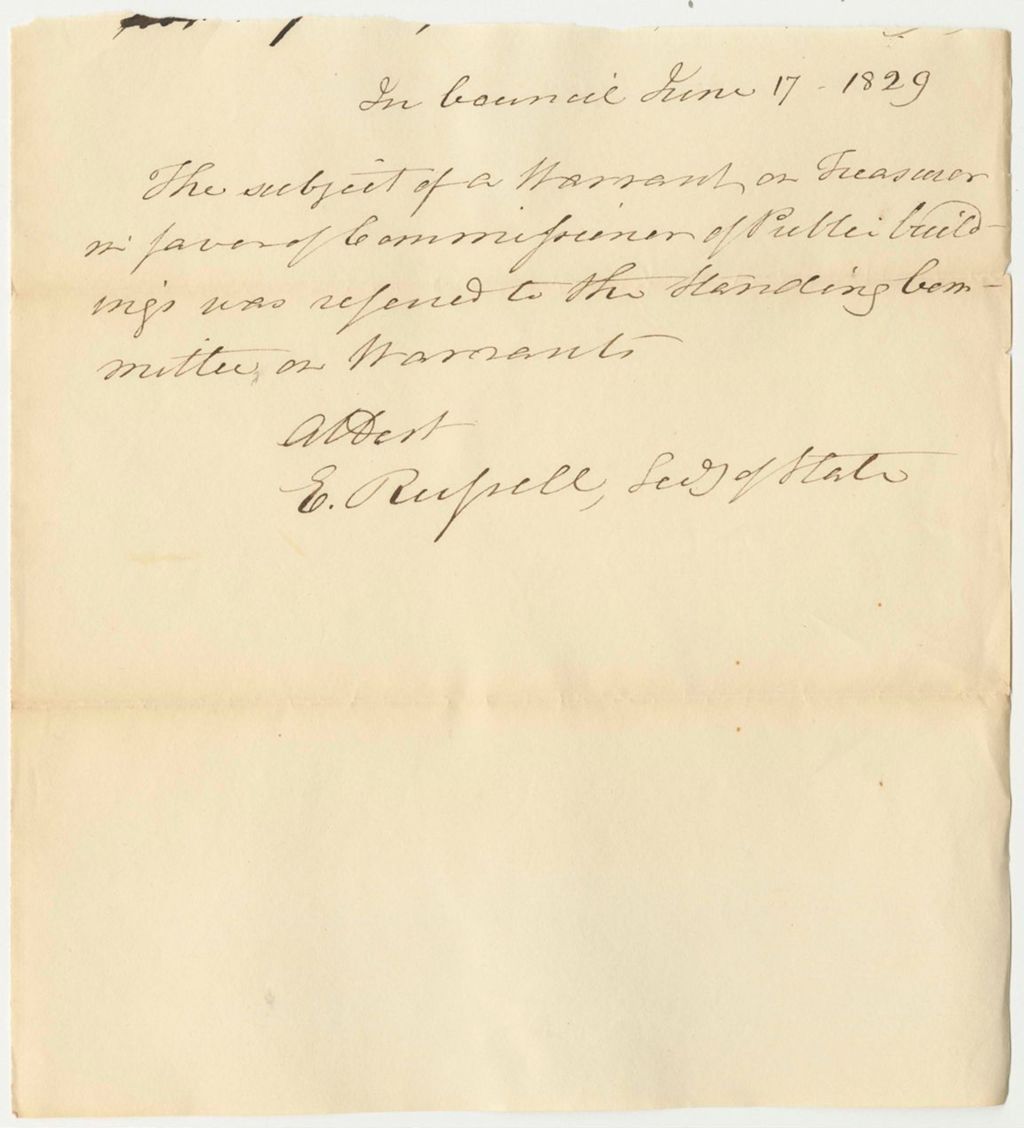 In Council June 17 - 1829
The subject of a Warrant on Treasurer
in favor of Commissioner of Public build-
ings was refered to the Standing Com-
mittee on Warrants
Attest
E. Russell, Secy of State